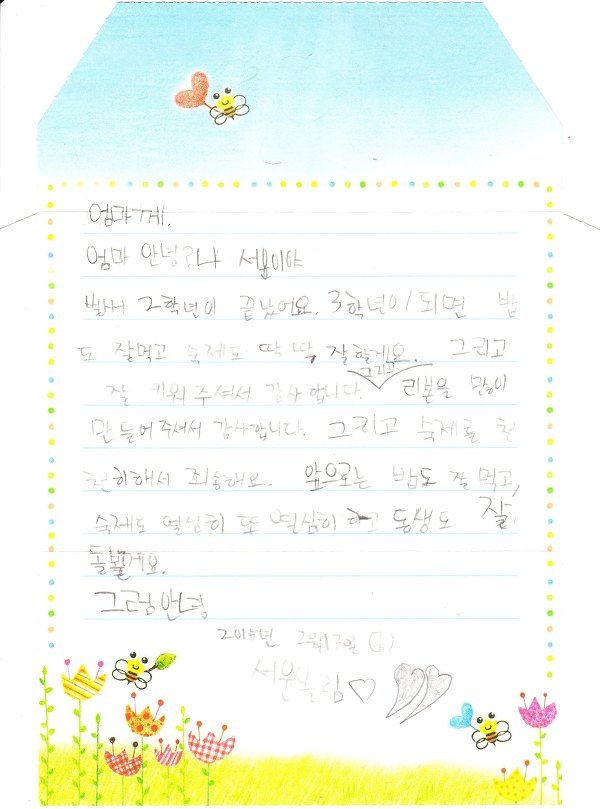 엄마께.
엄마 안녕?나 서윤이야
벌써 2학년이 끝났어요. 3학년이 되면 밥
도 잘먹고 숙제도 딱 딱 잘할게요. 그리고
잘 키워 주셔서 감사합니다. 그리고 리본을 많이
만들어주셔서 감사합니다. 그리고 숙제를 천
천히해서 죄송해요. 앞으로는 밥도 잘 먹고,
숙제도 열심히 또 열심히 하고 동생도 잘
돌볼게요.
그럼안녕
2015년 2월13일 (금)
서윤올림